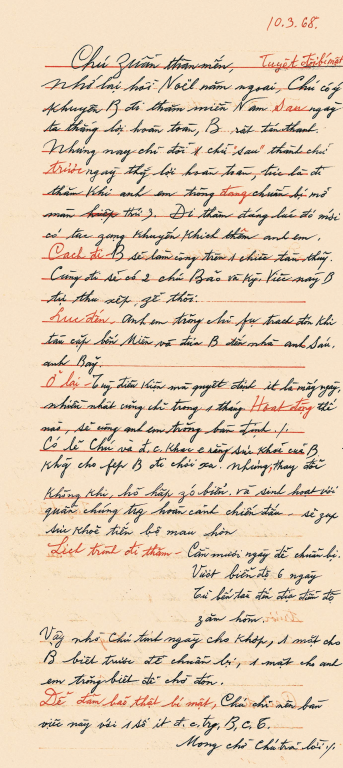 10.3.68.
Chú Zuẩn thân mến, Tuyệt đối bí mật
Nhớ lại hồi Noël năm ngoái, Chú có ý
khuyên B đi thăm miền Nam sau ngày
ta thắng lợi hoàn toàn, B rất tán thành.
Nhưng nay chỉ đổi 1 chữ "sau" thành chữ
trước ngày thắng lợi hoàn toàn, tức là đi
thăm khi anh em trong đang chuẩn bị mở
màn thứ 3. Đi thăm đang lúc đó mới
có tác dụng khuyến khích thêm anh em.
Cách đi B sẽ làm công trên 1 chiếc tàu thủy.
Cùng đi sẽ có 2 chú Bảo và Kỳ. Việc này B
tự thu xếp, zễ thôi.
Lúc đến, Anh em trong chỉ fụ trách đón khi
tàu cập bến Miên và đưa B đến nhà anh Sáu,
anh Bảy.
Ở lại - Tuỳ điều kiện mà quyết định ít là mấy ngày,
nhiều nhất cũng chỉ trong 1 tháng Hoạt động thế
nào, sẽ cùng anh em trong bàn định./.
Có lẽ Chú và đ.c. khác e rằng sức khoẻ của B
không cho fép B đi chơi xa. Nhưng, thay đổi
không khí, hô hấp gió biển và sinh hoạt với
quần chúng trg hoàn cảnh chiến đấu - sẽ giúp
sức khoẻ tiến bộ mau hơn
Lịch trình đi thăm - Cần mươi ngày để chuẩn bị.
Vượt biển độ 6 ngày
Từ bến tàu đến địa điểm độ
zăm hôm.
Vậy nhờ Chú tính ngày cho khớp, 1 mặt cho
B biết trước để chuẩn bị, 1 mặt cho anh
em trong biết để chờ đón.
Để đảm bảo thật bí mật, Chú chỉ nên bàn
việc này với 1 số ít đ.c. B, C, T.
Mong chờ Chú trả lời./.